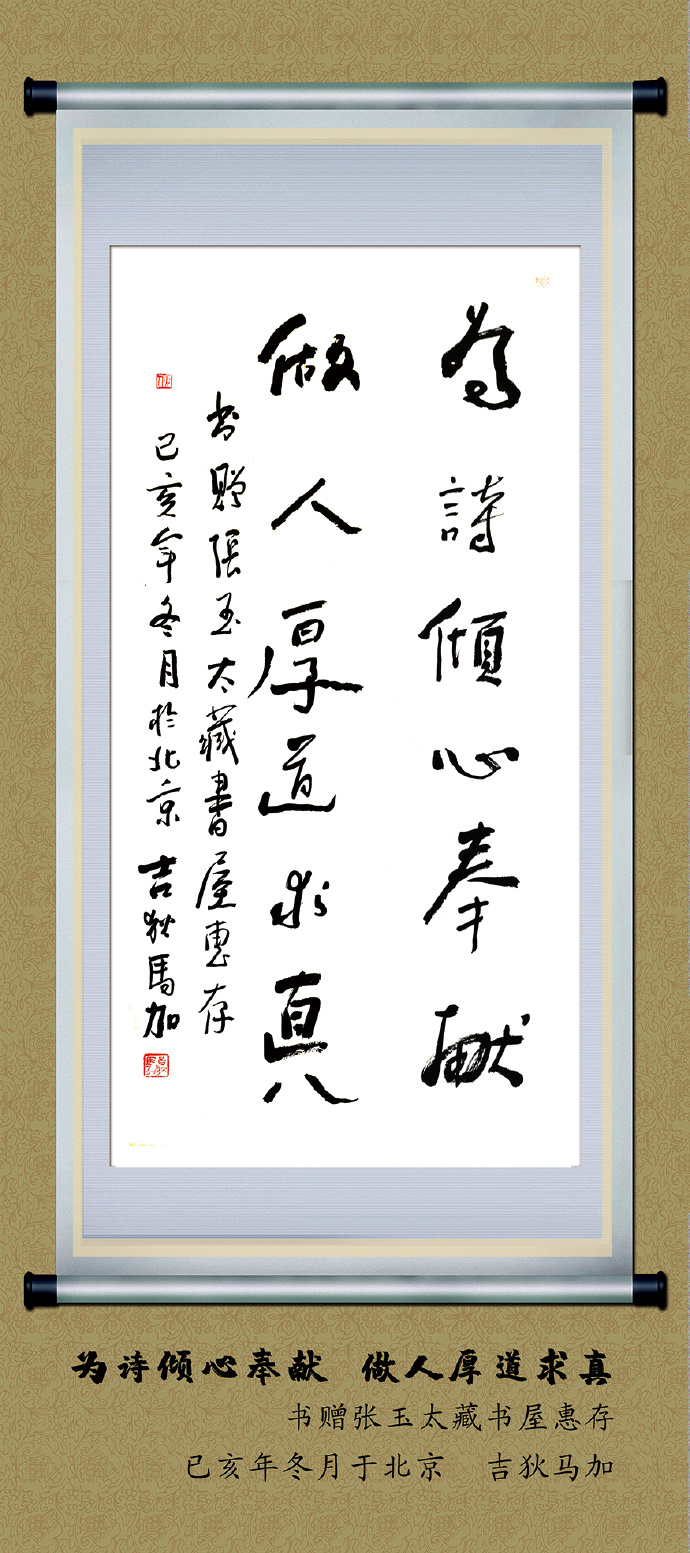 为詩傾心奉献
做人厚道求真
书赠張玉太藏書屋惠存
己亥年冬月於北京 吉狄馬加
为诗倾心奉献 做人厚道求真
书赠张玉太藏书屋惠存
已亥年冬月于北京 吉狄马加